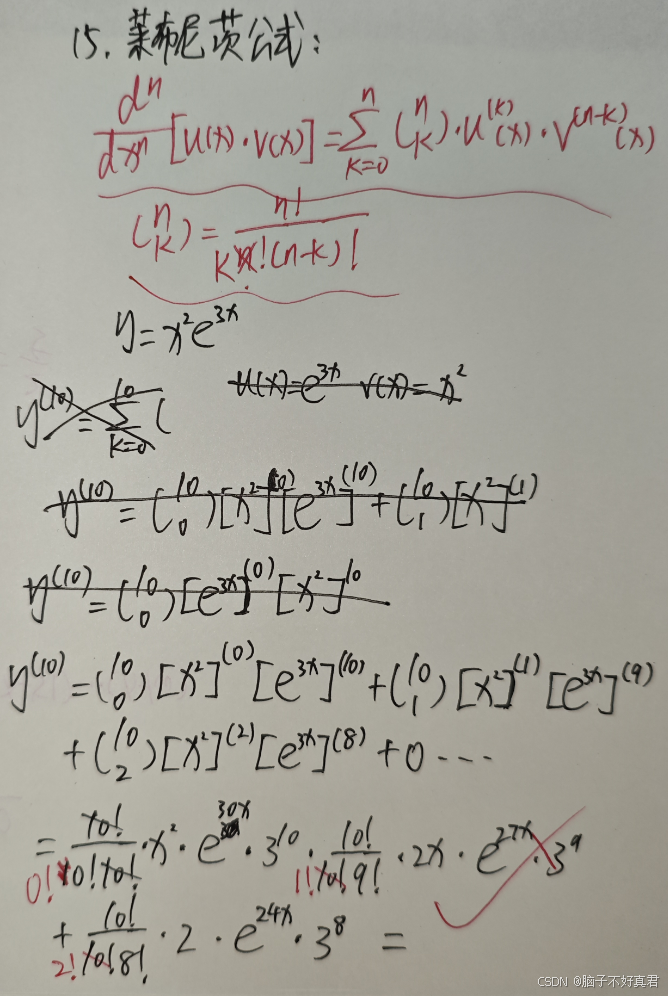 15. 莱布尼茨公式:
dⁿ/dxⁿ [u(x)·v(x)] = ∑_{k=0}^{n} (n k)·u^{(k)}(x)·v^{(n-k)}(x)
(n k) = n!/(k!(n-k)!)
y = x²e^{3x}
y^{(10)} = ∑_{k=0}^{10} ( u(x)=e^{3x} v(x)=x²
y^{(10)} = (10 0)[x²]^{(0)}[e^{3x}]^{(10)} + (10 1)[x²]^{(1)}
y^{(10)} = (10 0)[e^{3x}]^{(0)}[x²]^{10}
y^{(10)} = (10 0)[x²]^{(0)}[e^{3x}]^{(10)} + (10 1)[x²]^{(1)}[e^{3x}]^{(9)}
+ (10 2)[x²]^{(2)}[e^{3x}]^{(8)} + 0 ···
= 10!/(0! 10! 10!)·x²·e^{30x}·3^{10} · 10!/(1! 10! 9!)·2x·e^{27x}·3^9
+ 10!/(2! 10! 8!)·2·e^{24x}·3^8 =
CSDN @脑子不好真君